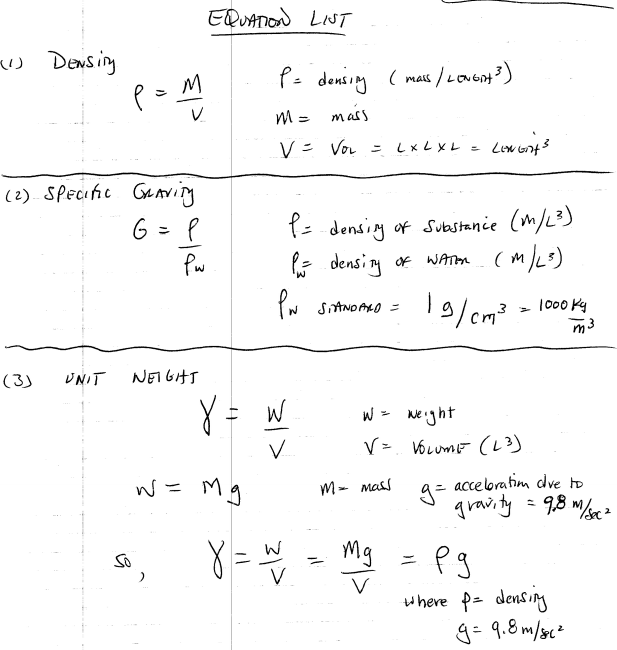 EQUATION LIST
(1) DENSITY
ρ = M/V
ρ = density (mass/LENGTH³)
M = mass
V = VOL = L x L x L = LENGTH³
(2) SPECIFIC GRAVITY
G = ρ/ρw
ρ = density of Substance (M/L³)
ρw = density of WATER (M/L³)
ρw STANDARD = 1 g/cm³ = 1000 Kg/m³
(3) UNIT WEIGHT
γ = W/V
W = weight
V = VOLUME (L³)
W = Mg
M = mass
g = acceleration due to
gravity = 9.8 m/sec²
so, γ = W/V = Mg/V = ρg
where ρ = density
g = 9.8 m/sec²